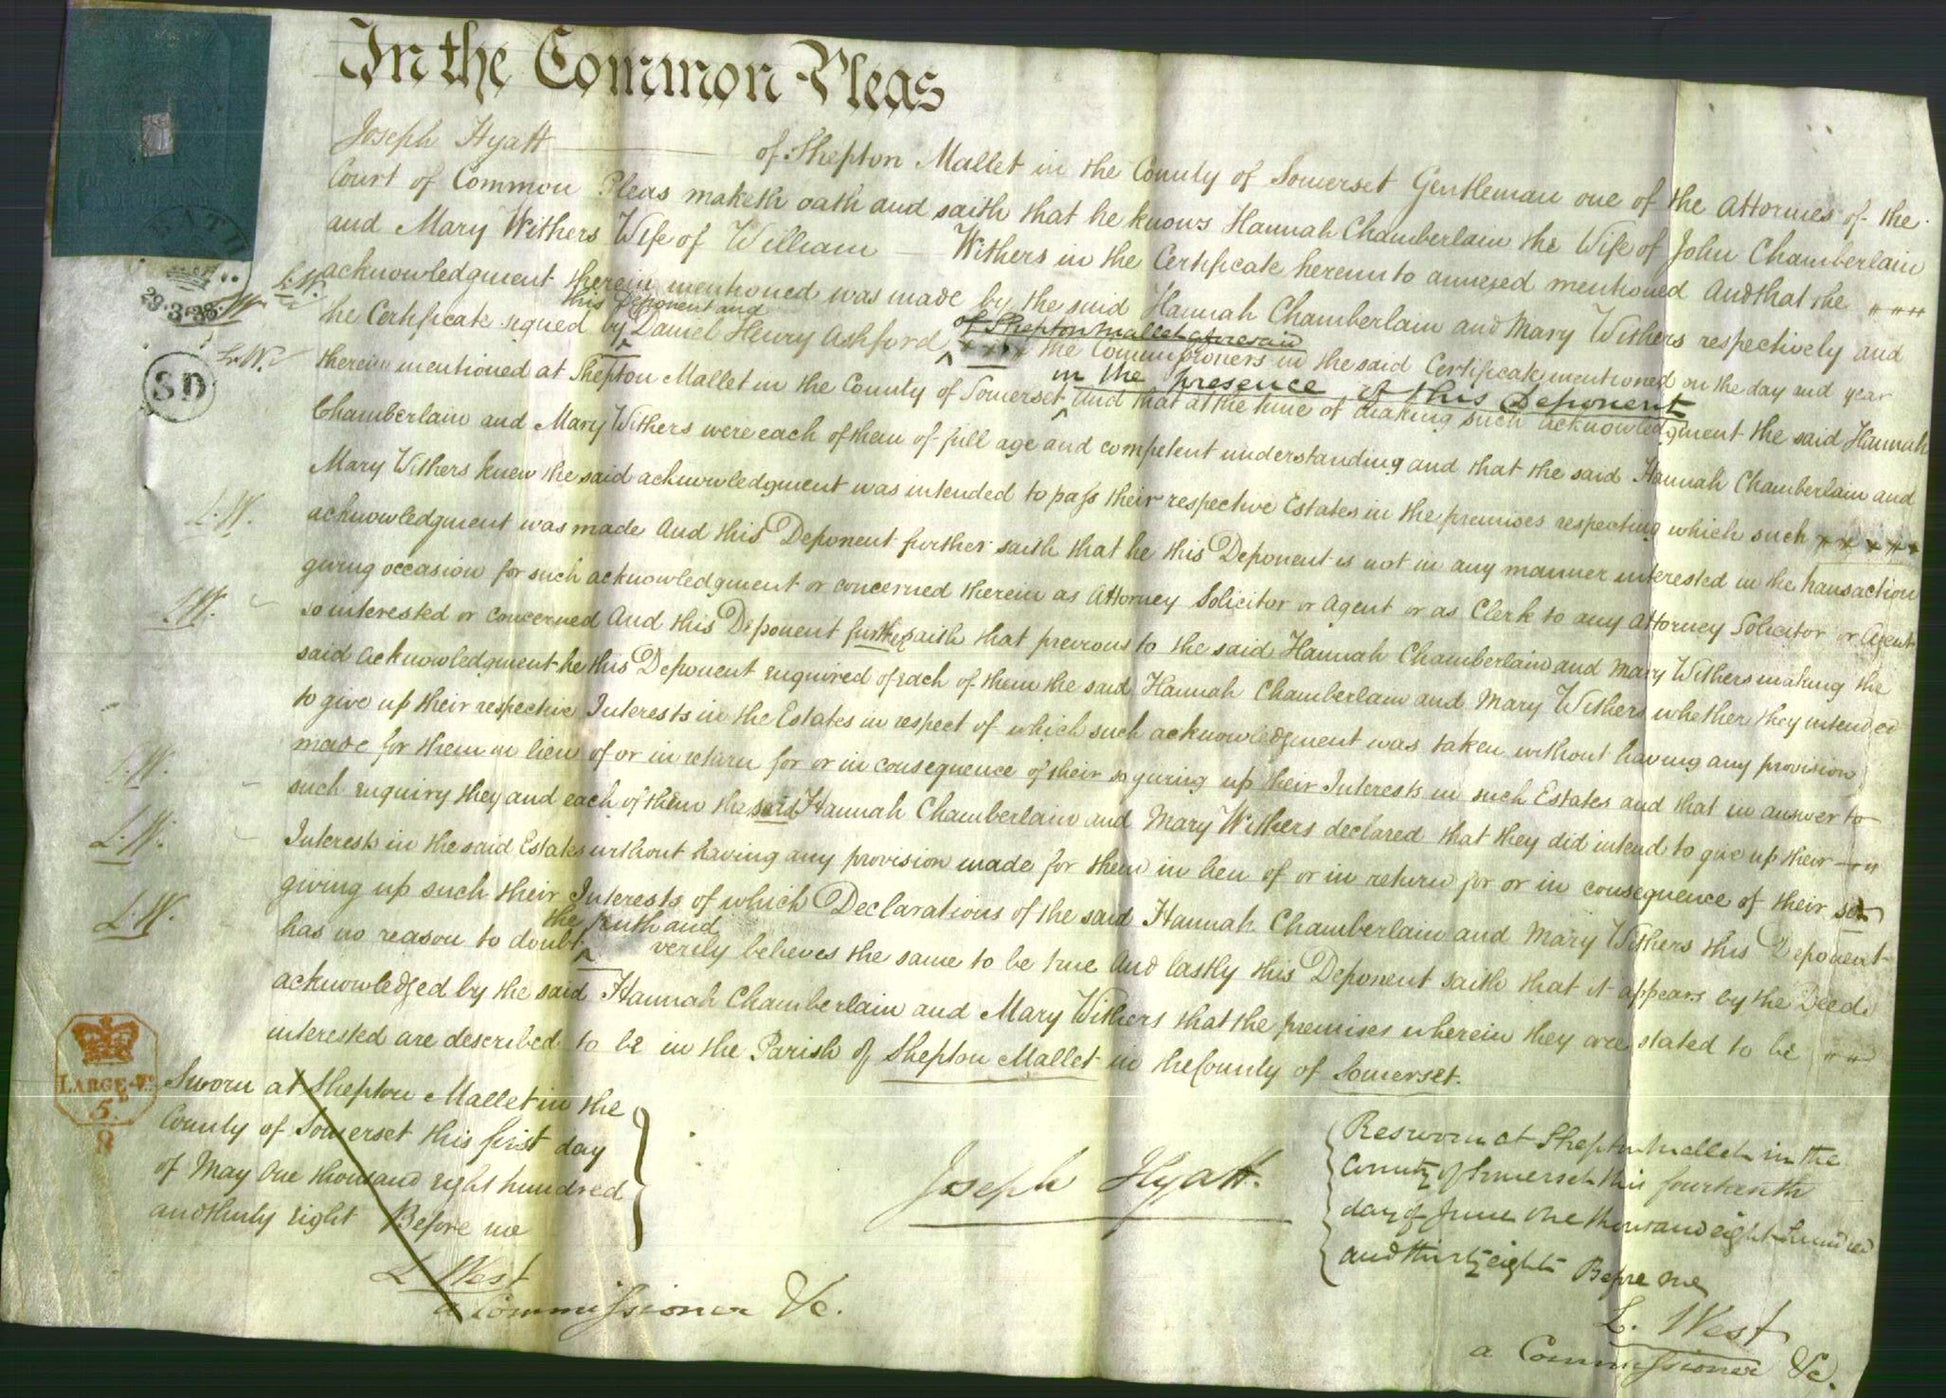 In the Common Pleas
Joseph Hyatt of Shepton Mallet in the County of Somerset Gentleman one of the Attornies of the
Court of Common Pleas maketh oath and saith that he knows Hannah Chamberlain the Wife of John Chamberlain
and Mary Withers Wife of William Withers in the Certificate hereunto annexed mentioned And that the
acknowledgment therein mentioned was made by the said Hannah Chamberlain and Mary Withers respectively and
this Deponent and
of Shepton Mallet aforesaid
the Certificate signed by Daniel Henry Ashford the Commissioners in the said Certificate mentioned on the day and year
in the presence of this Deponent
therein mentioned at Shepton Mallet in the County of Somerset and that at the time of making such acknowledgment the said Hannah
Chamberlain and Mary Withers were each of them of full age and competent understanding and that the said Hannah Chamberlain and
Mary Withers knew the said acknowledgment was intended to pass their respective Estates in the premises respecting which such
acknowledgment was made And this Deponent further saith that he this Deponent is not in any manner interested in the transaction
giving occasion for such acknowledgment or concerned therein as Attorney Solicitor or Agent or as Clerk to any Attorney Solicitor or Agent
so interested or concerned And this Deponent further saith that previous to the said Hannah Chamberlain and Mary Withers making the
said acknowledgment he this Deponent enquired of each of them the said Hannah Chamberlain and Mary Withers whether they intended
to give up their respective Interests in the Estates in respect of which such acknowledgment was taken without having any provision
made for them in lieu of or in return for or in consequence of their so giving up their Interests in such Estates and that in answer to
such enquiry they and each of them the said Hannah Chamberlain and Mary Withers declared that they did intend to give up their
Interests in the said Estates without having any provision made for them in lieu of or in return for or in consequence of their so
giving up such their Interests of which Declarations of the said Hannah Chamberlain and Mary Withers this Deponent
the truth and
has no reason to doubt verily believes the same to be true And lastly this Deponent saith that it appears by the Deed
acknowledged by the said Hannah Chamberlain and Mary Withers that the premises wherein they are stated to be
interested are described to be in the Parish of Shepton Mallet in the County of Somerset.
Sworn at Shepton Mallet in the
County of Somerset this first day
of May One thousand eight hundred
and thirty eight Before me
L West
a Commissioner &c.
Joseph Hyatt.
Resworn at Shepton Mallet in the
County of Somerset this fourteenth
day of June One thousand eight hundred
and thirty eight Before me
L. West
a Commissioner &c.
29.3.38
L.W.
L.W.
L.W.
SD
L.W.
L.W.
L.W.
L.W.
L.W.
LARGE
5
8